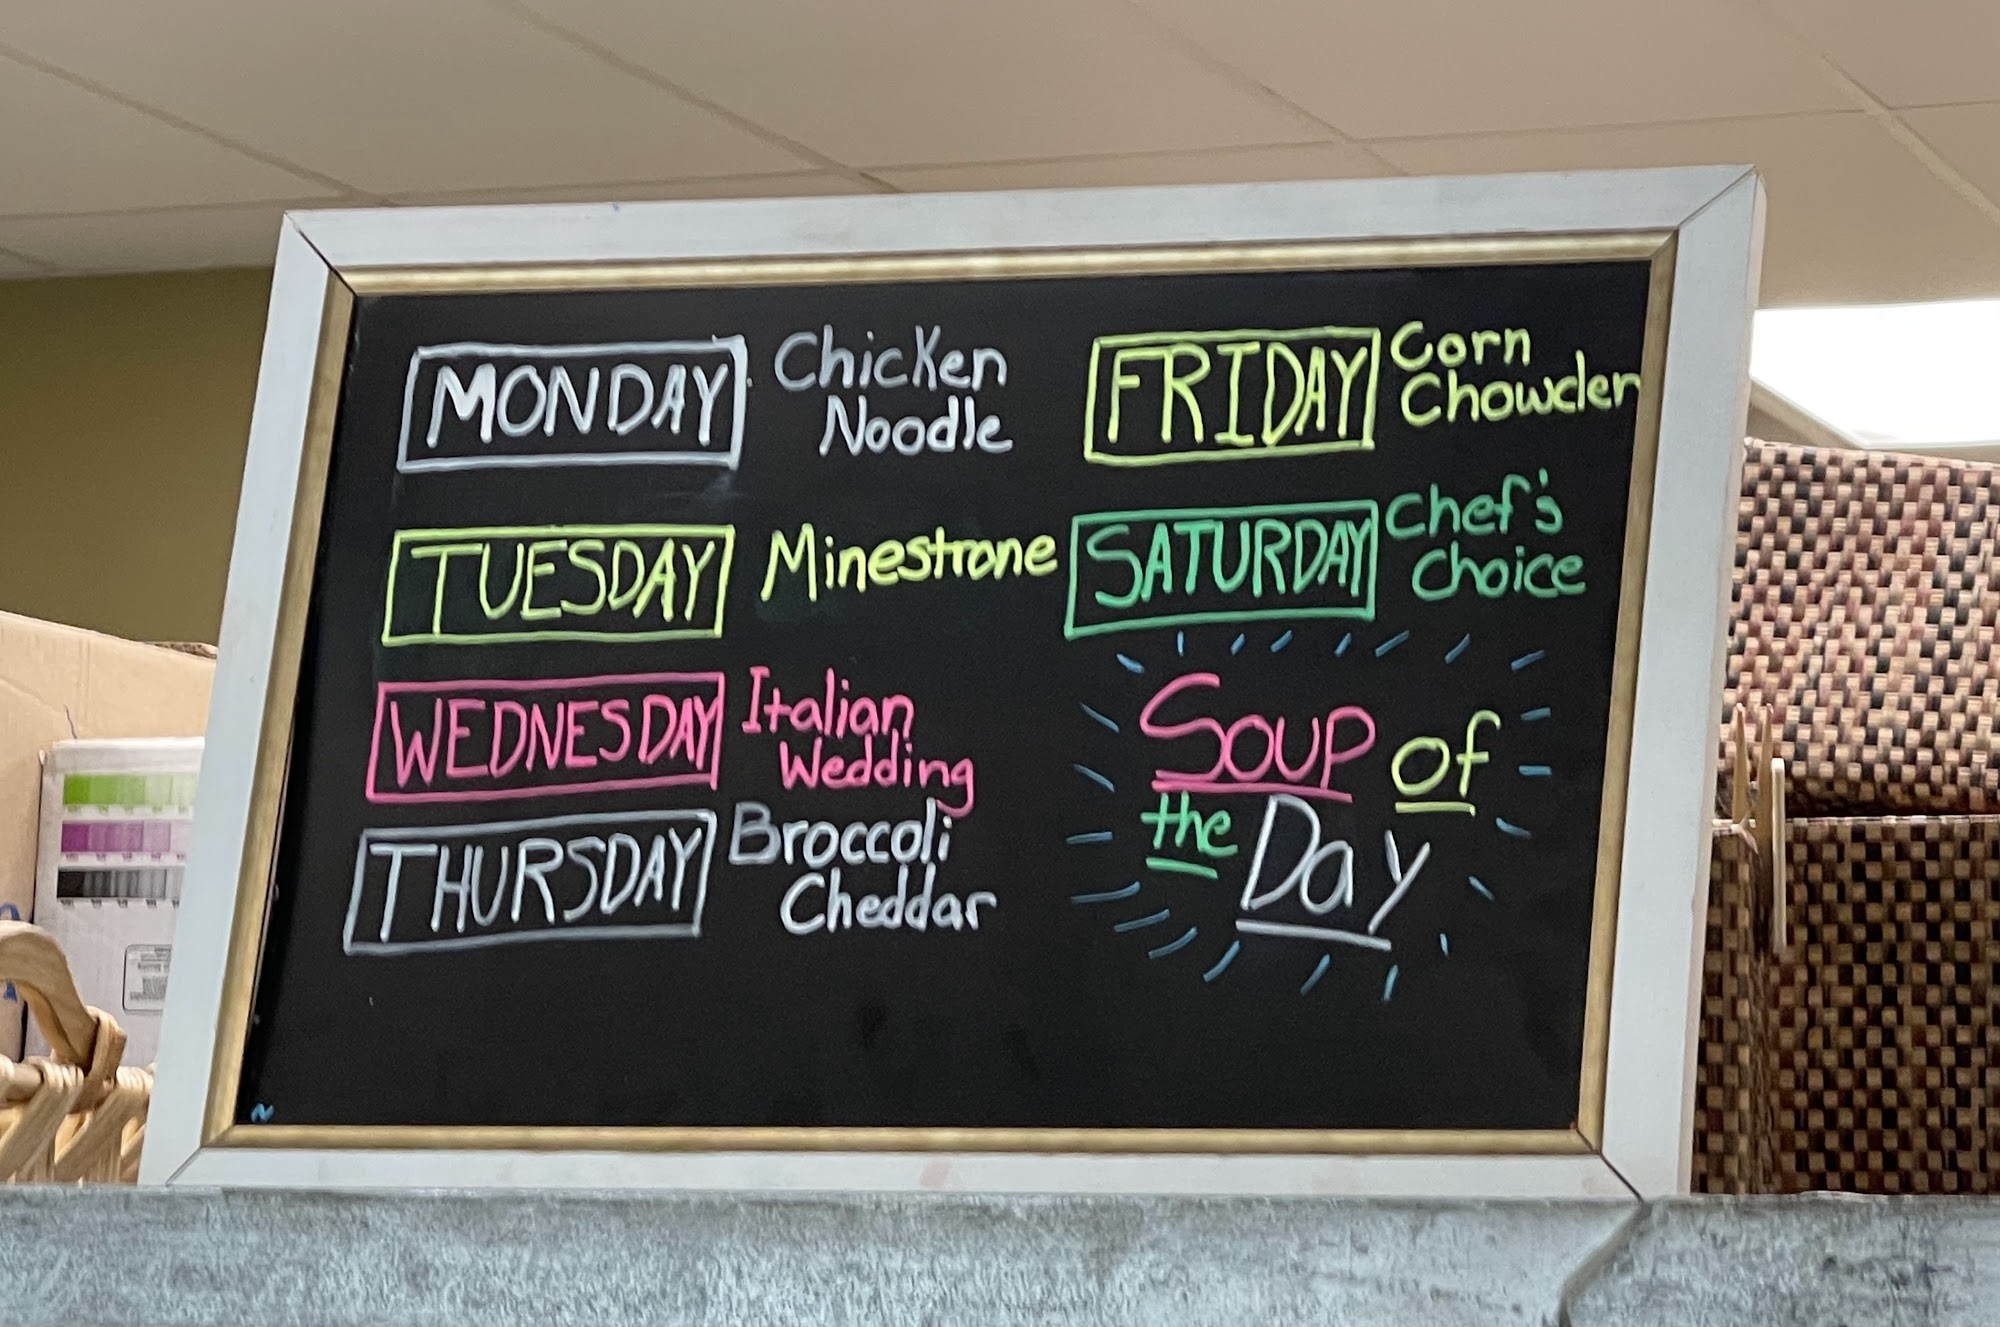 MONDAY Chicken
Noodle
TUESDAY Minestrone
WEDNESDAY Italian
Wedding
THURSDAY Broccoli
Cheddar
FRIDAY Corn
Chowder
SATURDAY Chef's
Choice
Soup of
the Day